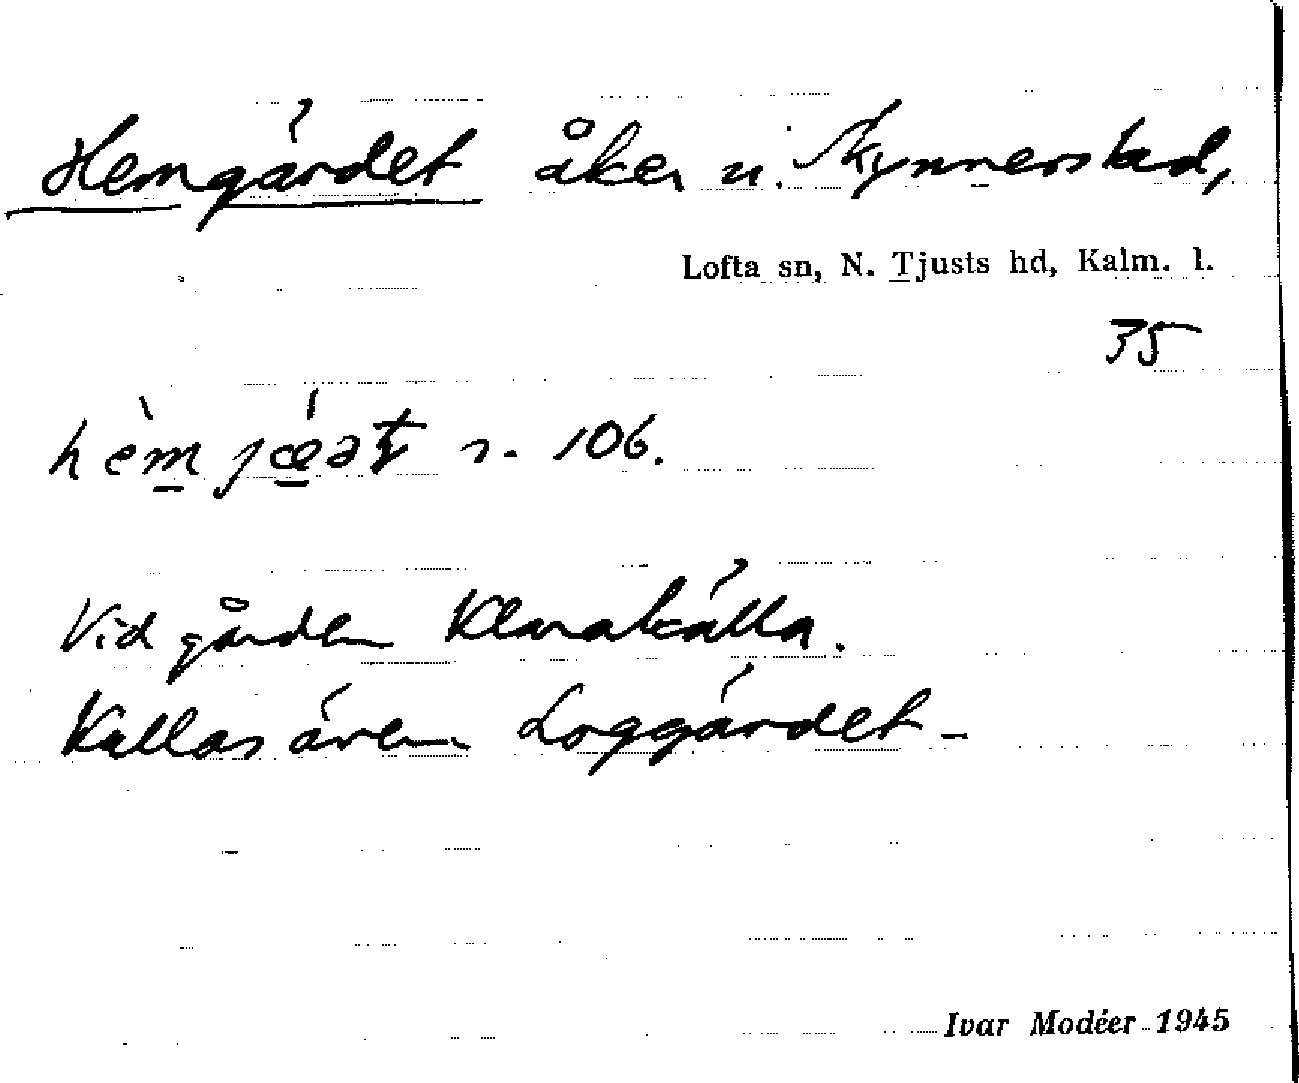 Hemgärdet åker u. Skynnerstad,
Lofta sn, N. Tjusts hd, Kalm. l.
35
s. 106.
Vid gården Klarakälla.
Kallas även Loggärdet -
Ivar Modéer 1945